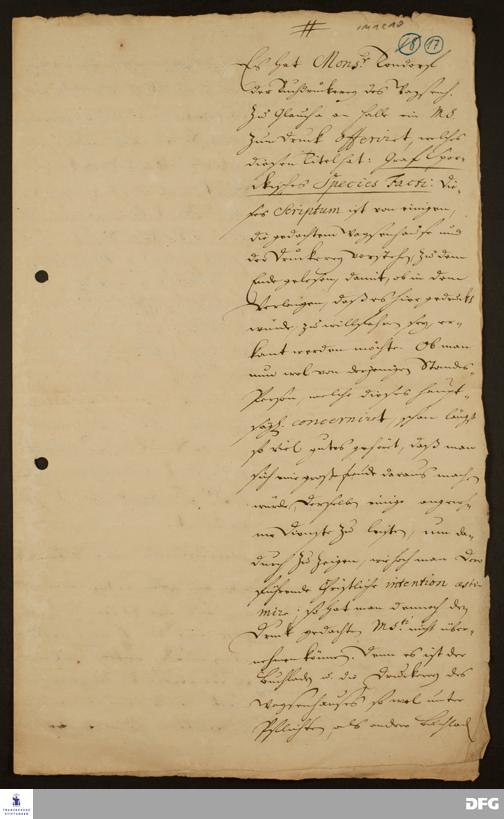 18 17
Es hat Mons.r Tondorf
der Buchdruckerey des Waysenh.
zu Glaucha an Halle ein MS.
zum Druck offeriret, welches
diesen Titel hat: Graf Spor-
ckisches Species Facti: Die-
ses Scriptum ist von einigen,
die gedachtem Waysenhause und
der Druckerey vorstehen, zu dem
Ende gelesen, damit, ob in dem
Verlangen, daß es hier gedruckt
würde, zu willfahren sey, er-
kant werden möchte. Ob man
nun wol von derjenigen Standes-
Person, welche dieses haupt-
sächl. concerniret, schon längst
so viel gutes gehöret, daß man
sich eine große freude daraus machen
würde, derselben einige angeneh-
me Dienste zu leisten, um da-
durch zu zeigen, wie hoch man Dero
führende Christliche intention aesti-
mire; so hat man dennoch den
Druck gedachten MS.ti nicht über-
nehmen können. Denn es ist der
Buchladen u. die Druckerey des
Waysenhauses so wol unter
Pflichten, als andere Buchlad
FRANCKESCHE
STIFTUNGEN
DFG